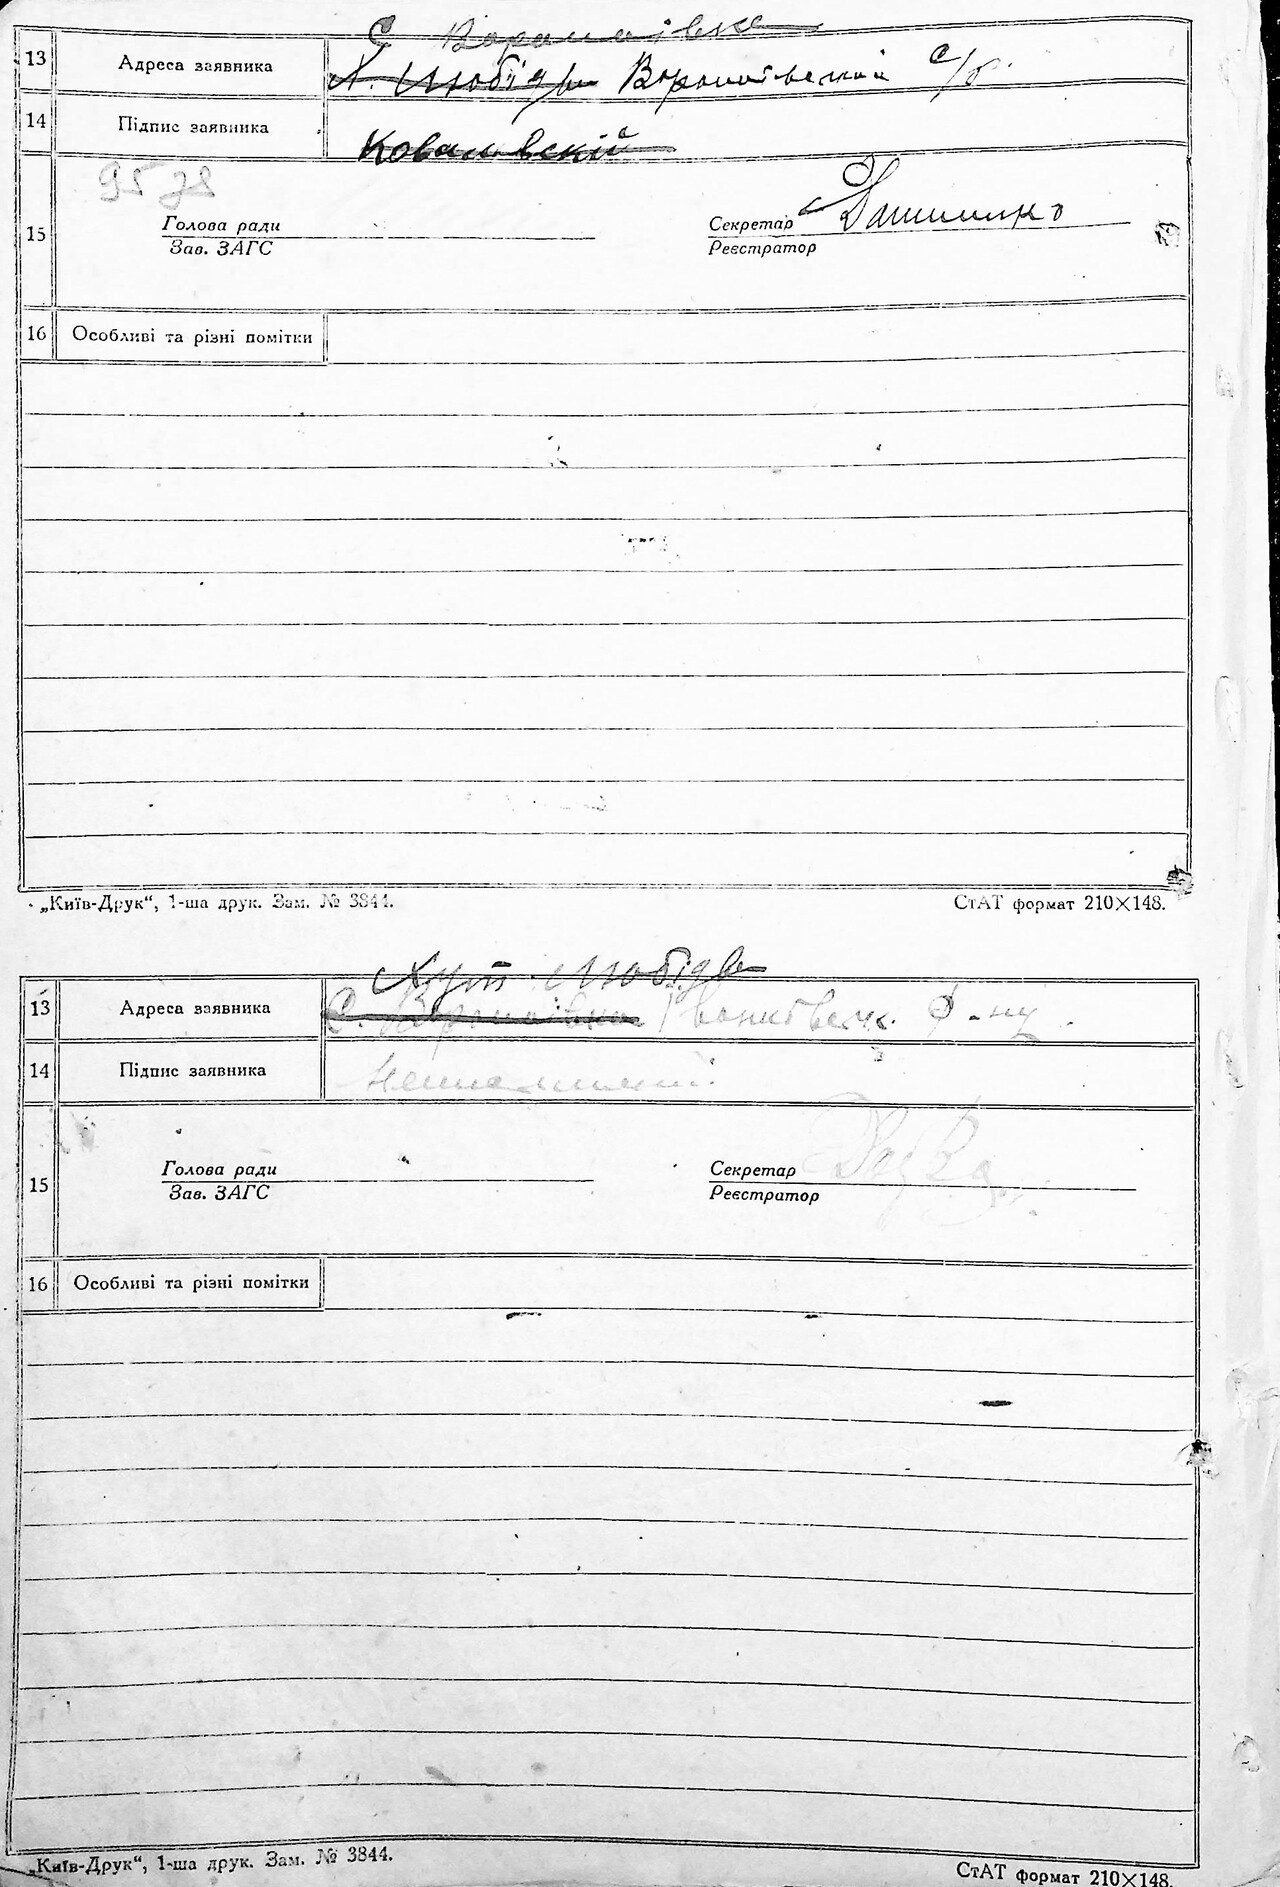 С Воронківка
13 Адреса заявника Х. Любідва Вороньківський с/р.
14 Підпис заявника Ковалівскій
9578
15 Голова ради Секретар
Зав. ЗАГС Реєстратор
16 Особливі та різні помітки
„Київ-Друк“, 1-ша друк. Зам. № 3844. СтАТ формат 210×148.
Хут Любідва
13 Адреса заявника С. р-ну
14 Підпис заявника Неписьменний.
15 Голова ради Секретар
Зав. ЗАГС Реєстратор
16 Особливі та різні помітки
„Київ-Друк“, 1-ша друк. Зам. № 3844. СтАТ формат 210×148.